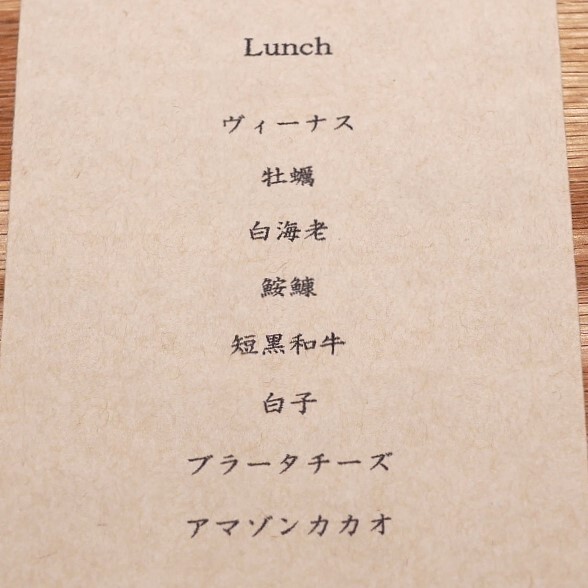 Lunch
ヴィーナス
牡蠣
白海老
鮟鱇
短黒和牛
白子
ブラータチーズ
アマゾンカカオ